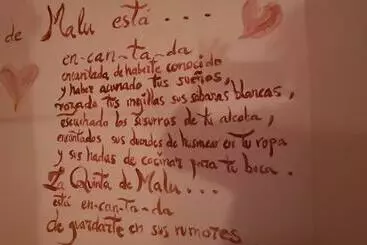 de Malu está . . .
en-can-ta-da
encantada de haberte conocido
y haber acunado tus sueños,
rozado tus mejillas sus sabanas blancas,
escuchado los susurros de tu alcoba,
encantados sus duendes de husmear en tu ropa
y sus hadas de cocinar para tu boca.
La Quinta de Malu...
está en-can-ta-da
de guardarte en sus rumores